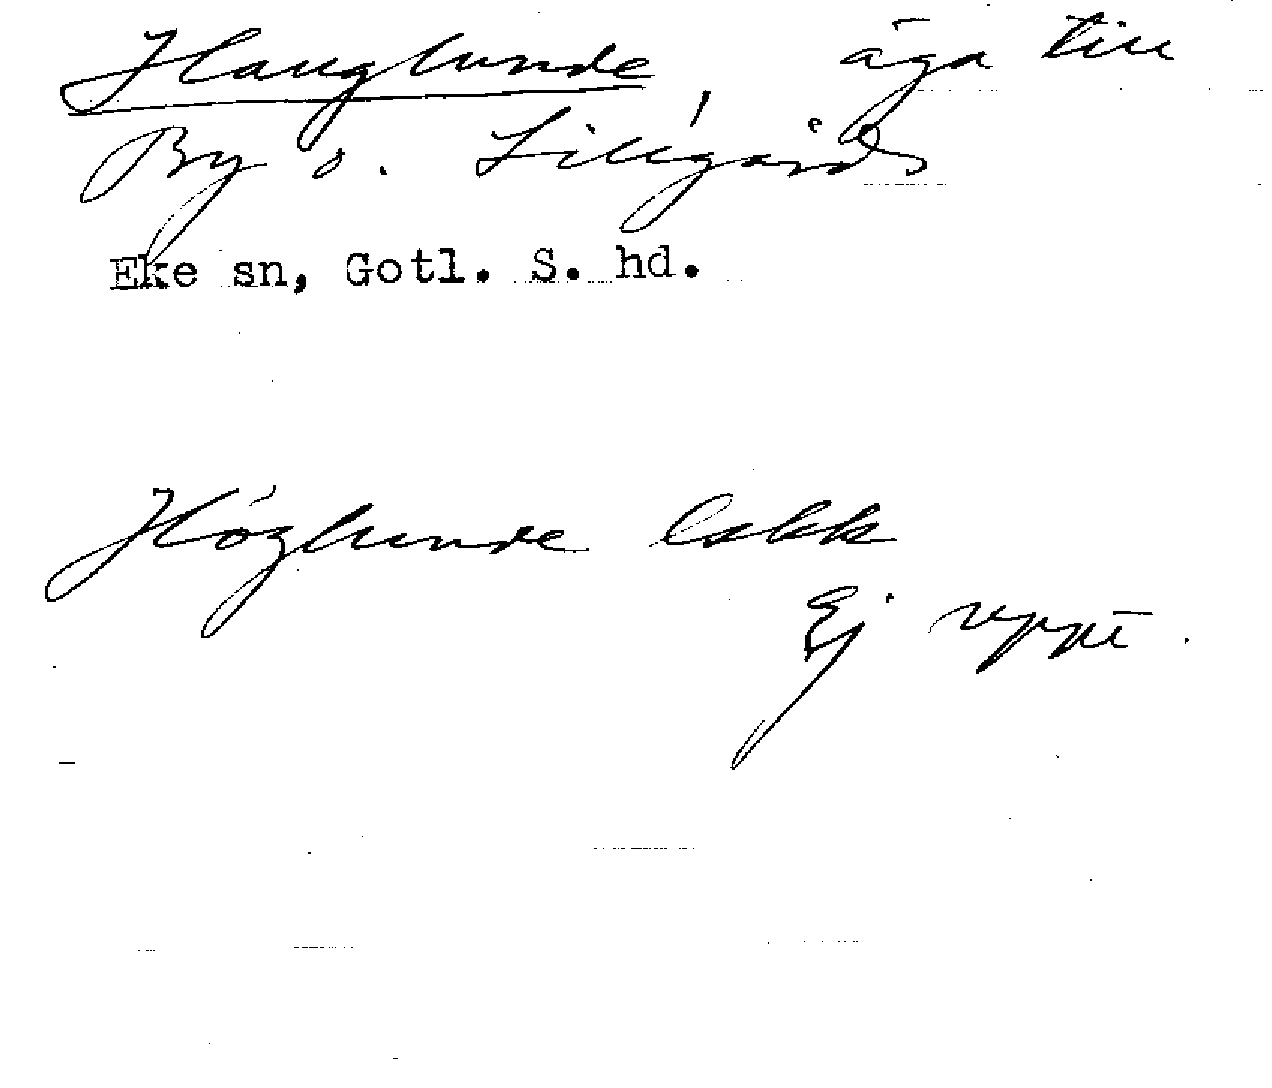 Hauglunde, äga till
By o. Lillgårds
Eke sn, Gotl. S. hd.
Höglunde lskk
Ej uppt.